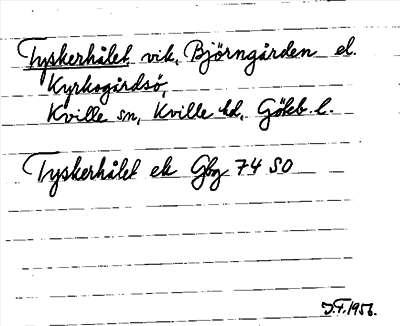 Tyskerhålet, vik, Björngården el.
Kyrkogårdsö,
Kville sn, Kville hd, Göteb. l.
Tyskerhålet ek Gbg 74 SO
J.F. 1956.